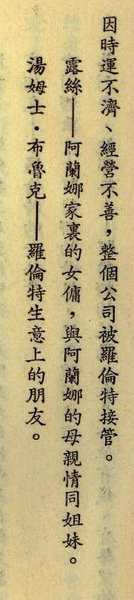 因時運不濟、經營不善，整個公司被羅倫特接管。
露絲——阿蘭娜家裏的女傭，與阿蘭娜的母親情同姐妹。
湯姆士・布魯克——羅倫特生意上的朋友。